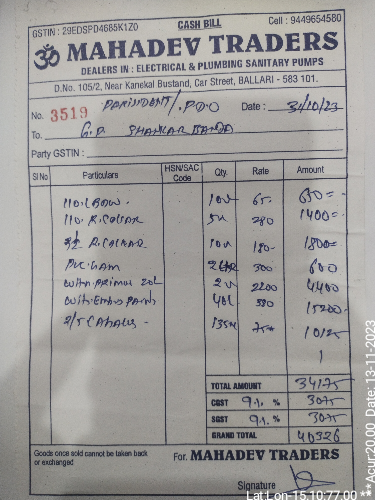 GSTIN : 29EDSPD4685K1Z0
CASH BILL
Cell : 9449654580
ॐ MAHADEV TRADERS
DEALERS IN : ELECTRICAL & PLUMBING SANITARY PUMPS
D.No. 105/2, Near Kanekal Bustand, Car Street, BALLARI - 583 101.
No. 3519 P.D.O Date : 31/10/23
To. G.P. SHANKAR BANDA
Party GSTIN :
Sl No Particulars HSN/SAC Code Qty. Rate Amount
110. 10 65 650=
110. R. 5 280 1400=
R. 10 180 1800=
300 600
2 2200 4400
40L 380 15200
135 75 10125
TOTAL AMOUNT 34175
CGST 9 % 3075
SGST 9 % 3075
GRAND TOTAL 40326
Goods once sold cannot be taken back or exchanged
For. MAHADEV TRADERS
Signature
Lat:Lon-15.10:77.00 ** Acur:20.00, Date: 13-11-2023